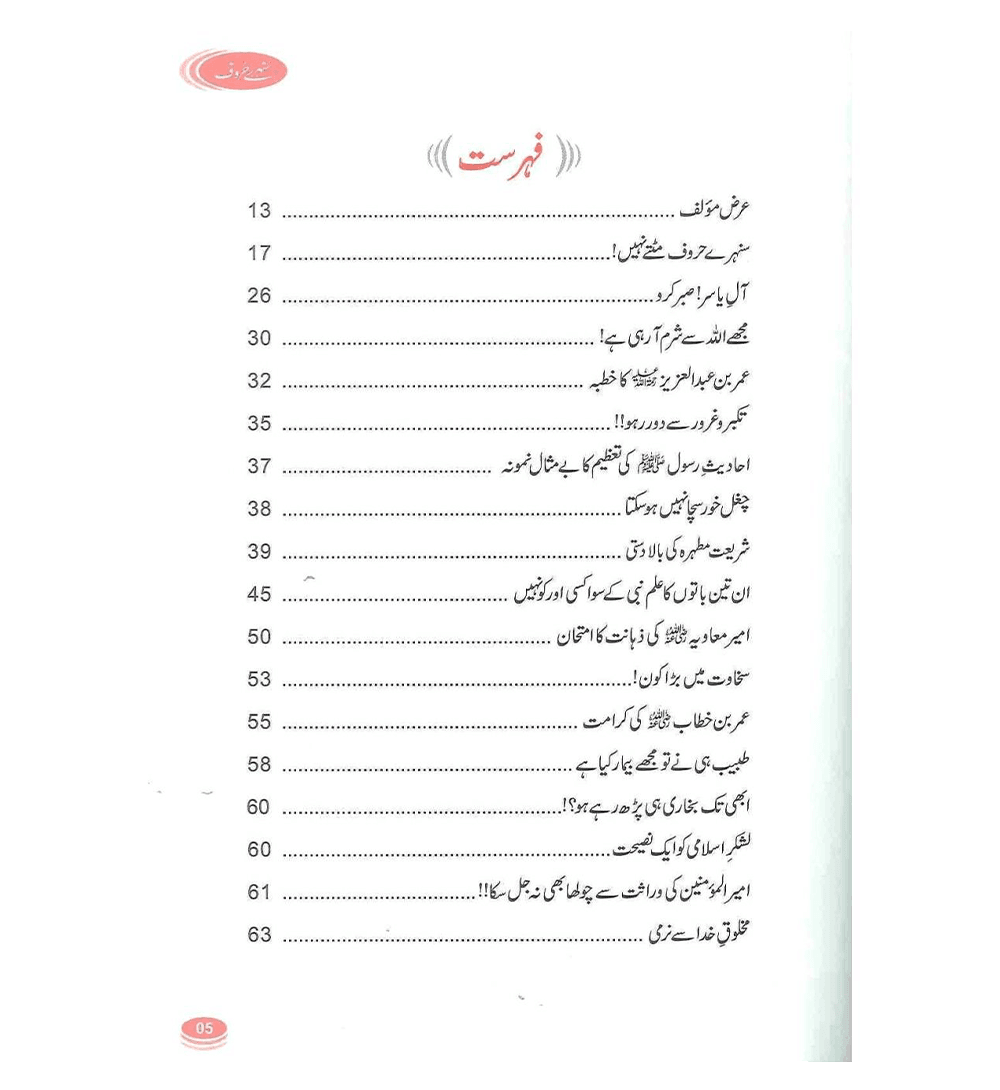 سنہرے حروف
فہرست
عرض مؤلف ........ 13
سنہرے حروف مٹتے نہیں! ........ 17
آلِ یاسر! صبر کرو ........ 26
مجھے اللہ سے شرم آ رہی ہے! ........ 30
عمر بن عبدالعزیز رحمۃ اللہ علیہ کا خطبہ ........ 32
تکبر و غرور سے دور رہو!! ........ 35
احادیثِ رسول ﷺ کی تعظیم کا بے مثال نمونہ ........ 37
چغل خور سچا نہیں ہو سکتا ........ 38
شریعت مطہرہ کی بالا دستی ........ 39
ان تین باتوں کا علم نبی کے سوا کسی اور کو نہیں ........ 45
امیر معاویہ رضی اللہ عنہ کی ذہانت کا امتحان ........ 50
سخاوت میں بڑا کون! ........ 53
عمر بن خطاب رضی اللہ عنہ کی کرامت ........ 55
طبیب ہی نے تو مجھے بیمار کیا ہے ........ 58
ابھی تک بخاری ہی پڑھ رہے ہو؟! ........ 60
لشکرِ اسلامی کو ایک نصیحت ........ 60
امیر المؤمنین کی وراثت سے چولھا بھی نہ جل سکا!! ........ 61
مخلوقِ خدا سے نرمی ........ 63
05